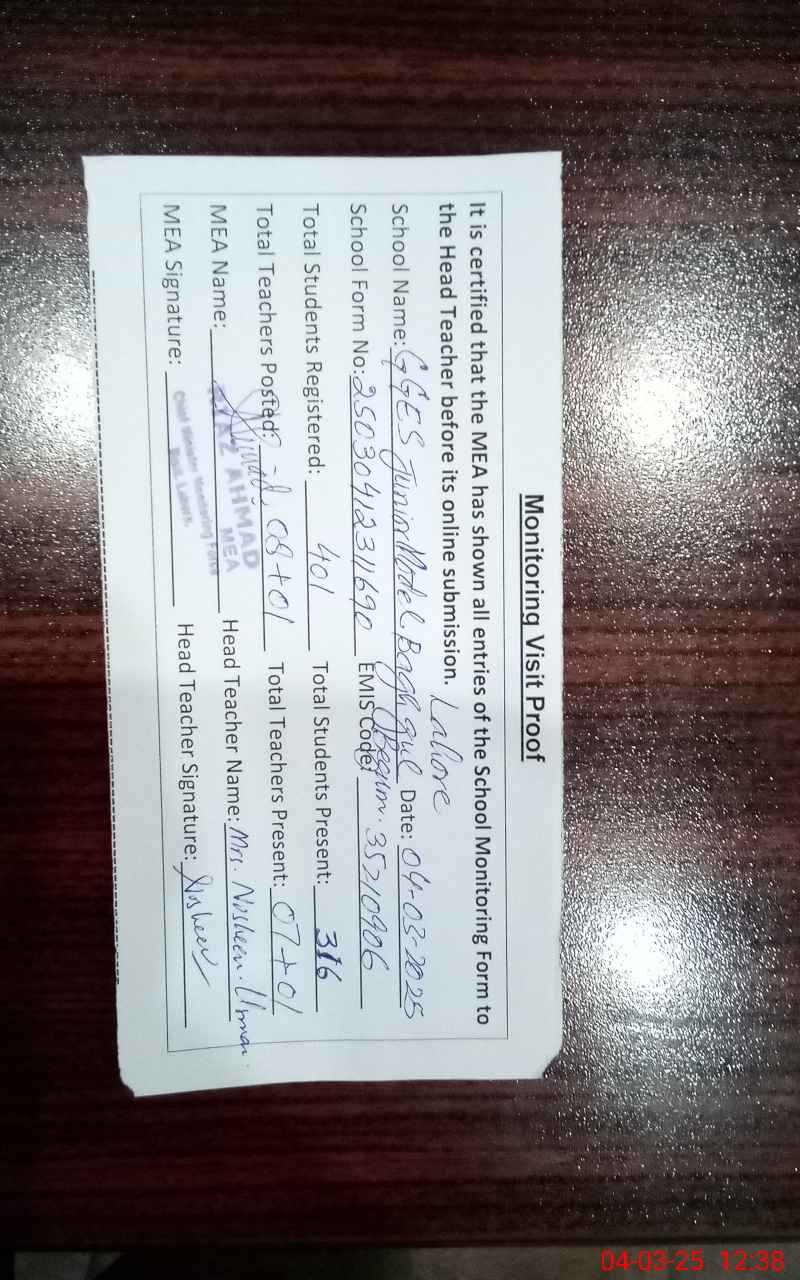 Monitoring Visit Proof
It is certified that the MEA has shown all entries of the School Monitoring Form to
the Head Teacher before its online submission. Lahore
School Name: GGES Junior Model Bagh gul Date: 04-03-2025
Begum.
School Form No: 250304123 EMIS Code: 35210906
Total Students Registered: 401 Total Students Present: 316
Total Teachers Posted: 08+01 Total Teachers Present: 07+01
MEA Name: AHMAD Head Teacher Name: Mrs. Nosheen Usman.
MEA
MEA Signature: Head Teacher Signature: Nosheen
Chief Minister Monitoring Force
Lahore.
04-03-25 12:38